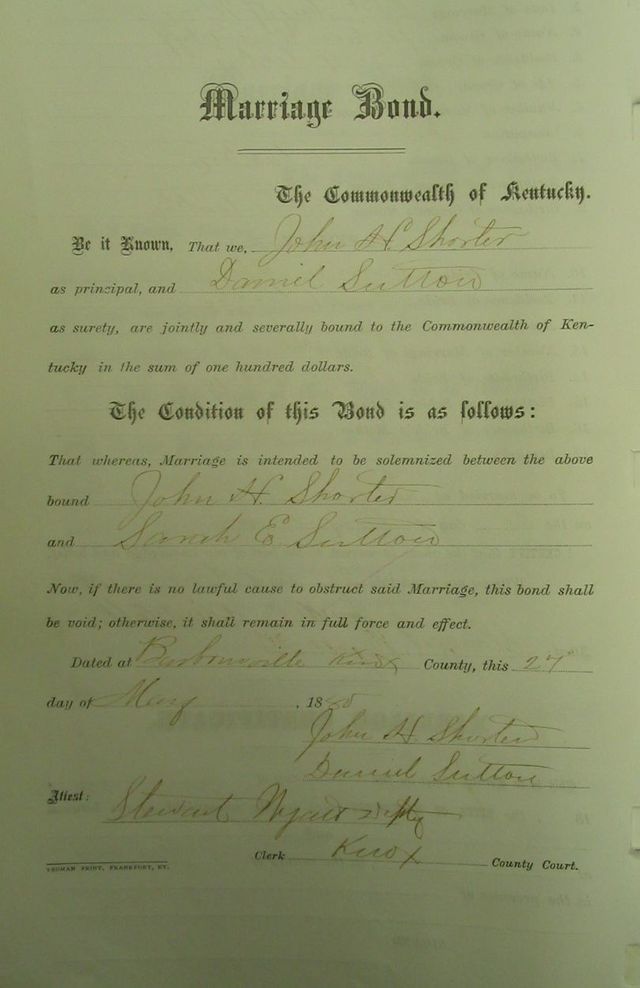 Marriage Bond.
The Commonwealth of Kentucky.
Be it Known, That we, John H Shorter
as principal, and Daniel Sutton
as surety, are jointly and severally bound to the Commonwealth of Ken-
tucky in the sum of one hundred dollars.
The Condition of this Bond is as follows:
That whereas, Marriage is intended to be solemnized between the above
bound John H. Shorter
and Sarah E. Sutton
Now, if there is no lawful cause to obstruct said Marriage, this bond shall
be void; otherwise, it shall remain in full force and effect.
Dated at Barbourville Knox County, this 27"
day of May , 1880
John H Shorter
Daniel Sutton
Attest: Stewart
Clerk Knox County Court.
YEOMAN PRINT, FRANKFORT, KY.